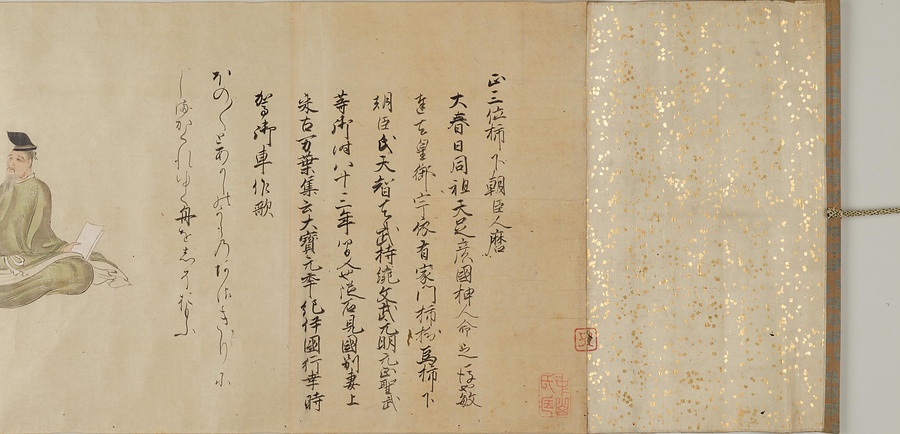 正三位柿下朝臣人麿
大春日同祖天足彦國押人命之後也敏
達天皇御宇依有家門柿樹為柿下
朝臣氏天智天武持統文武元明元正聖武
等御時八十三年間人也從石見國別妻上
来古万葉集云大寳元年紀伊國行幸時
駕御車作歌
ほの〱とあかしのうらのあさきりに
しまかくれゆく舟をしそおもふ